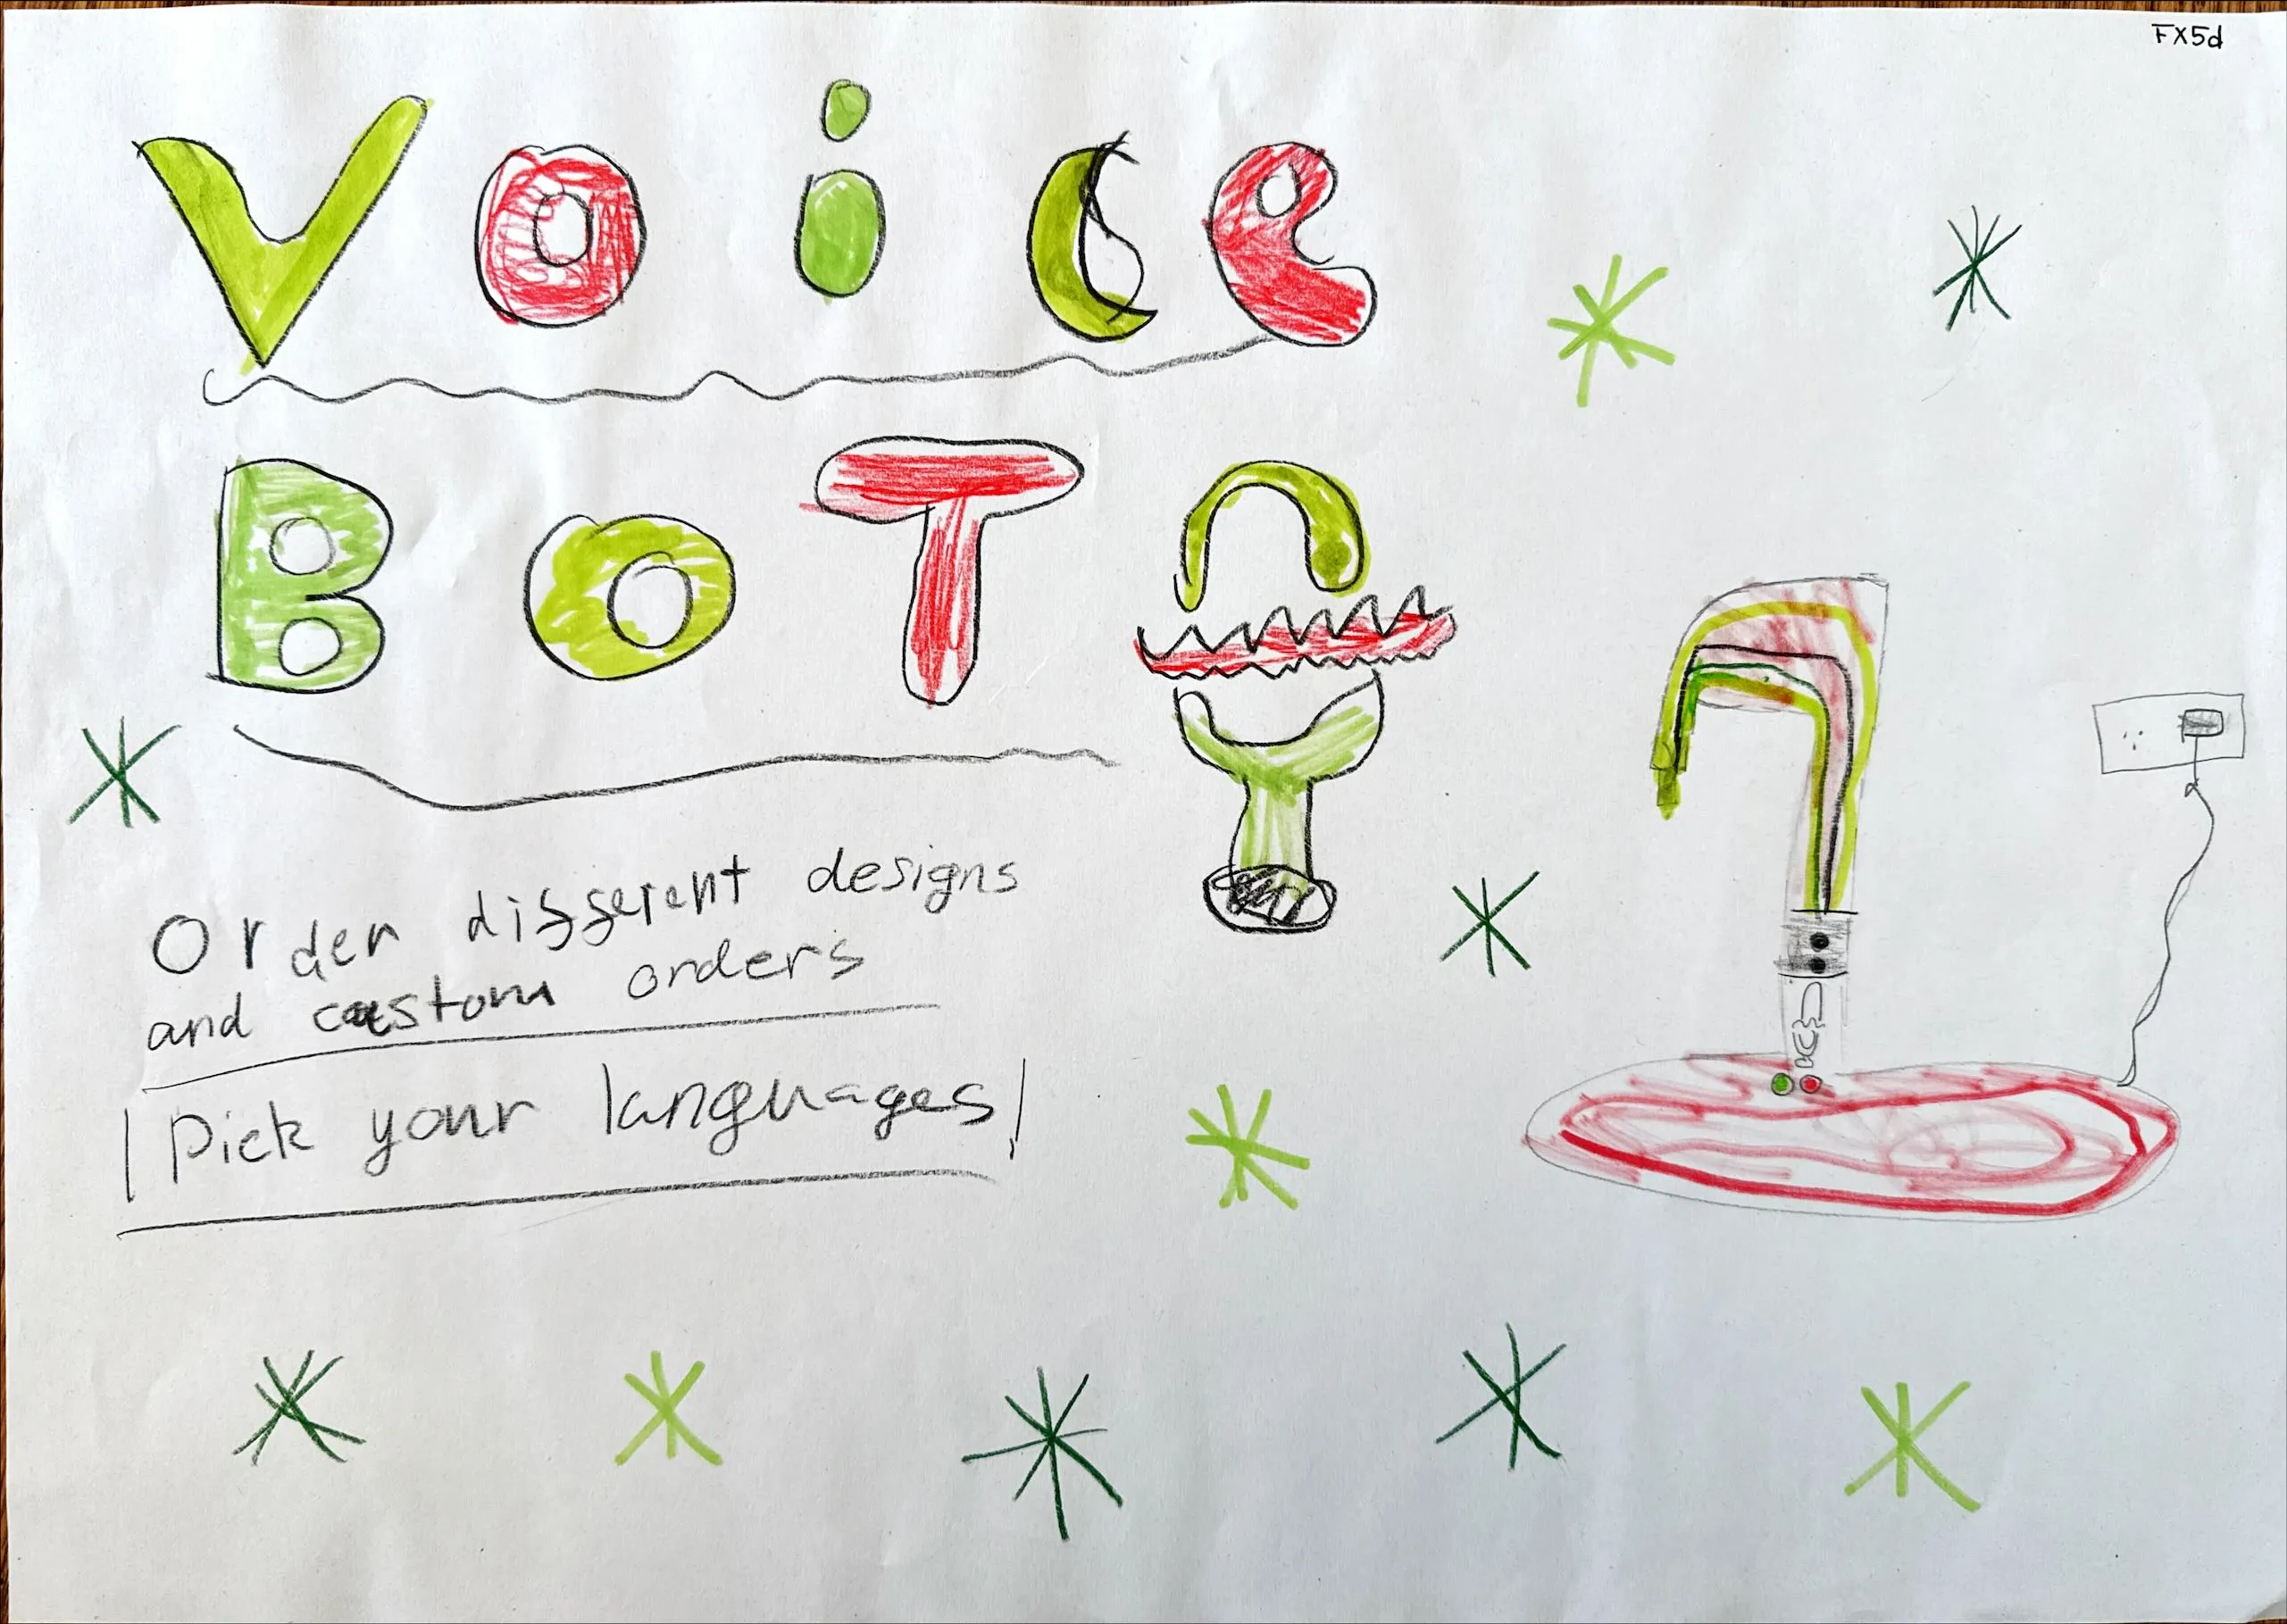 FX5d
Voice
BOT
Order different designs
and castom orders
Pick your languages!